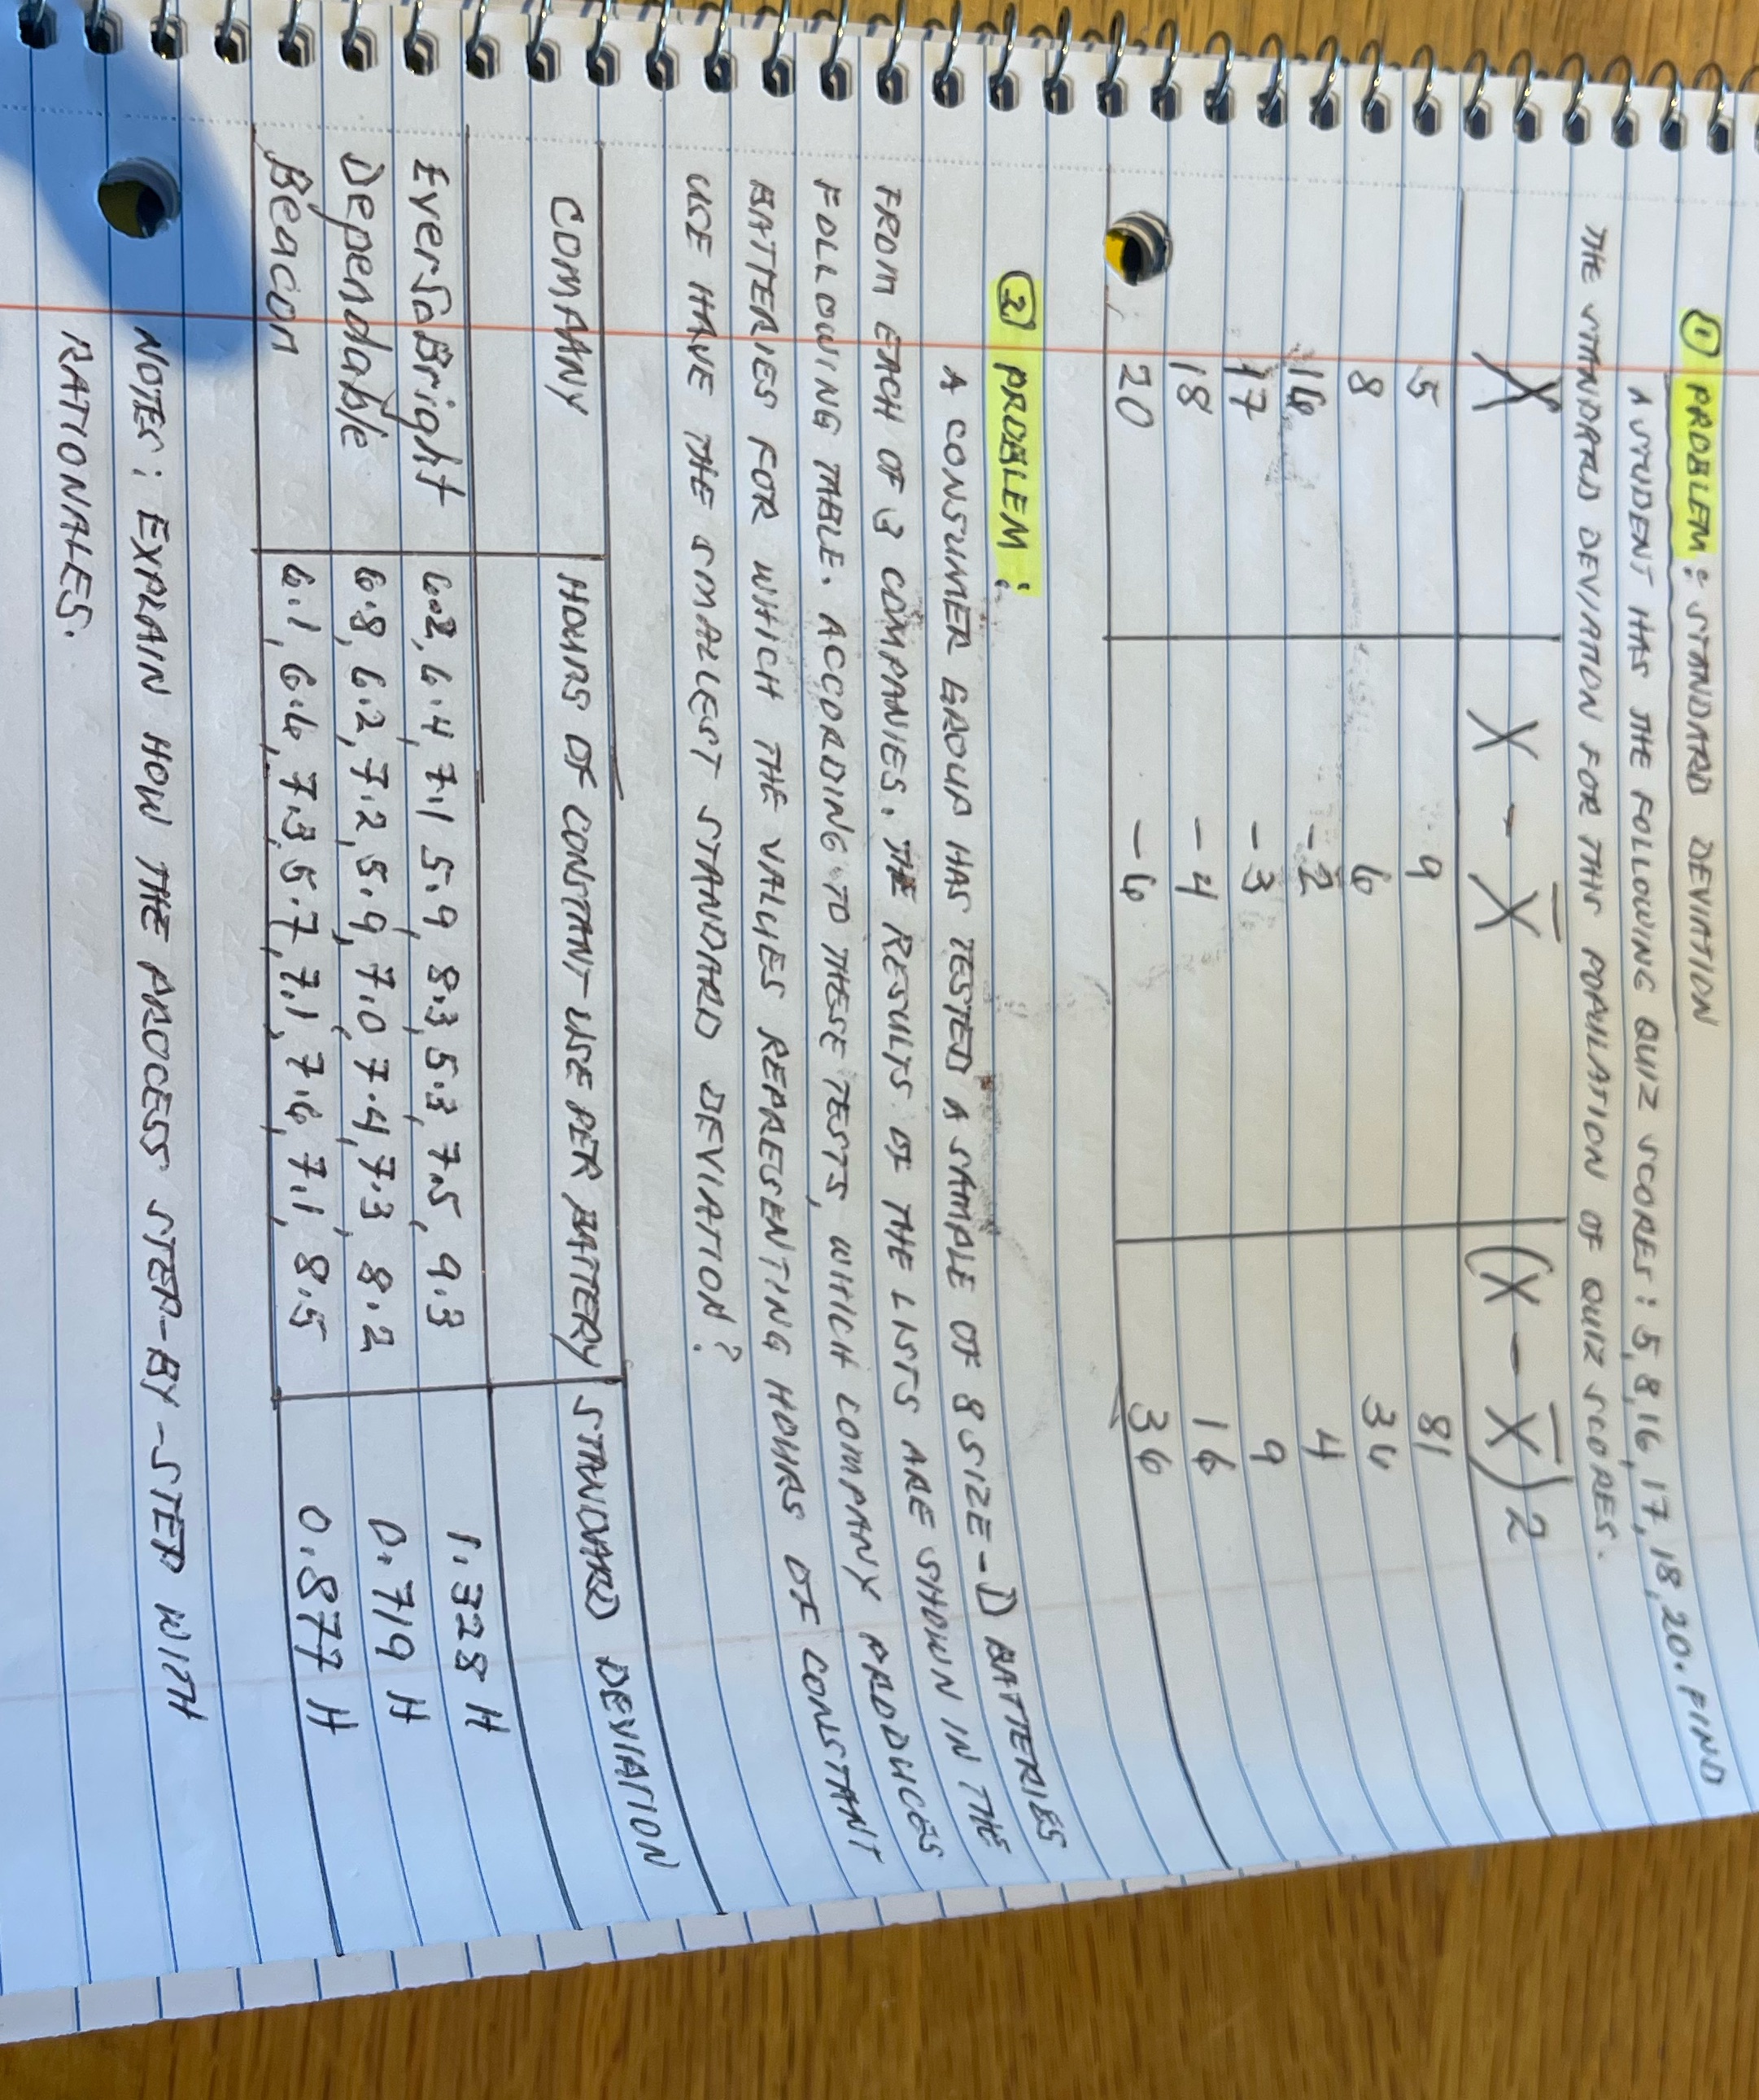 ① PROBLEM: STANDARD DEVIATION
A STUDENT HAS THE FOLLOWING QUIZ SCORES: 5, 8, 16, 17, 18, 20. FIND
THE STANDARD DEVIATION FOR THIS POPULATION OF QUIZ SCORES.
X X - X̄ (X - X̄)2
5 9 81
8 6 36
16 -2 4
17 -3 9
18 -4 16
20 -6 36
② PROBLEM:
A CONSUMER GROUP HAS TESTED A SAMPLE OF 8 SIZE-D BATTERIES
FROM EACH OF 3 COMPANIES. THE RESULTS OF THE LISTS ARE SHOWN IN THE
FOLLOWING TABLE. ACCORDING TO THESE TESTS, WHICH COMPANY PRODUCES
BATTERIES FOR WHICH THE VALUES REPRESENTING HOURS OF CONSTANT
USE HAVE THE SMALLEST STANDARD DEVIATION?
COMPANY HOURS OF CONSTANT-USE PER BATTERY STANDARD DEVIATION
EverSoBright 6.2, 6.4, 7.1 5.9, 8.3, 5.3, 7.5, 9.3 1.328 H
Dependable 6.8, 6.2, 7.2, 5.9, 7.0, 7.4, 7.3, 8.2 0.719 H
Beacon 6.1, 6.6, 7.3, 5.7, 7.1, 7.6, 7.1, 8.5 0.877 H
NOTES: EXPLAIN HOW THE PROCESS STEP-BY-STEP WITH
RATIONALES.